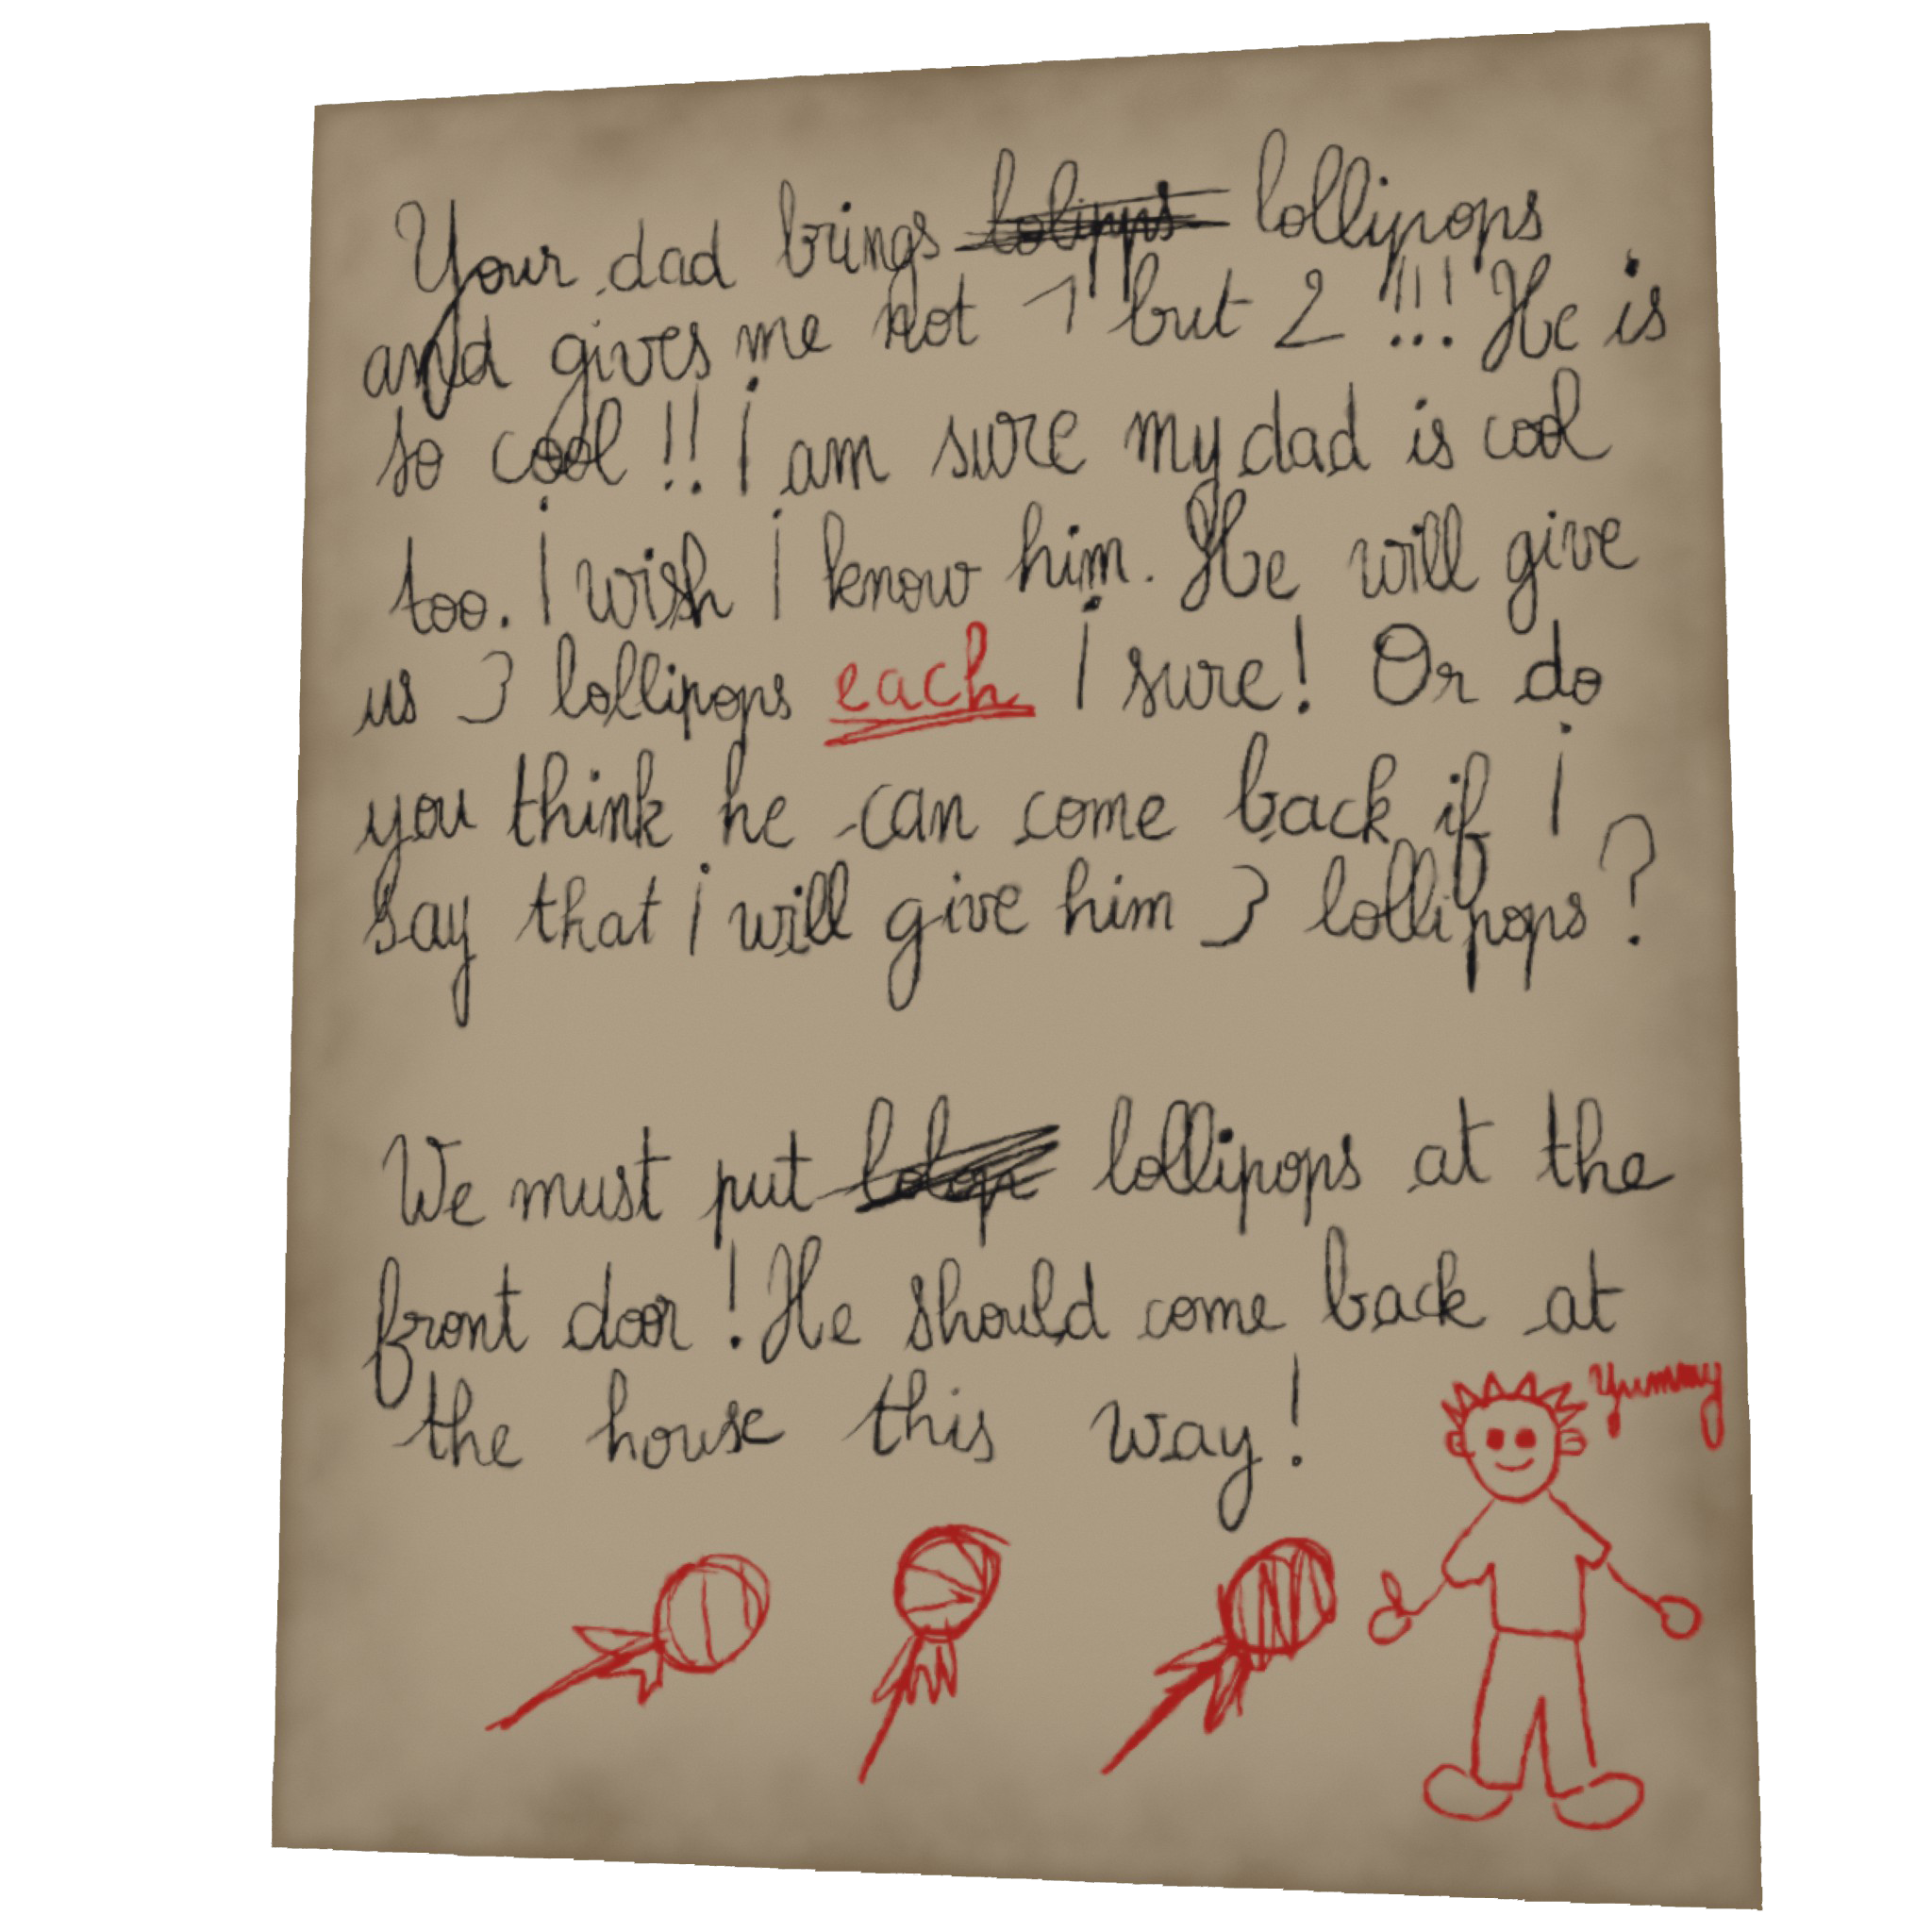 Your dad brings lolipps lollipops
and gives me not 1 but 2 !!! He is
so cool !! I am sure my dad is cool
too. I wish I know him. He will give
us 3 lollipops each I sure! Or do
you think he can come back if I
say that i will give him 3 lollipops ?
We must put lolop lollipops at the
front door ! He should come back at
the house this way !
Yummy